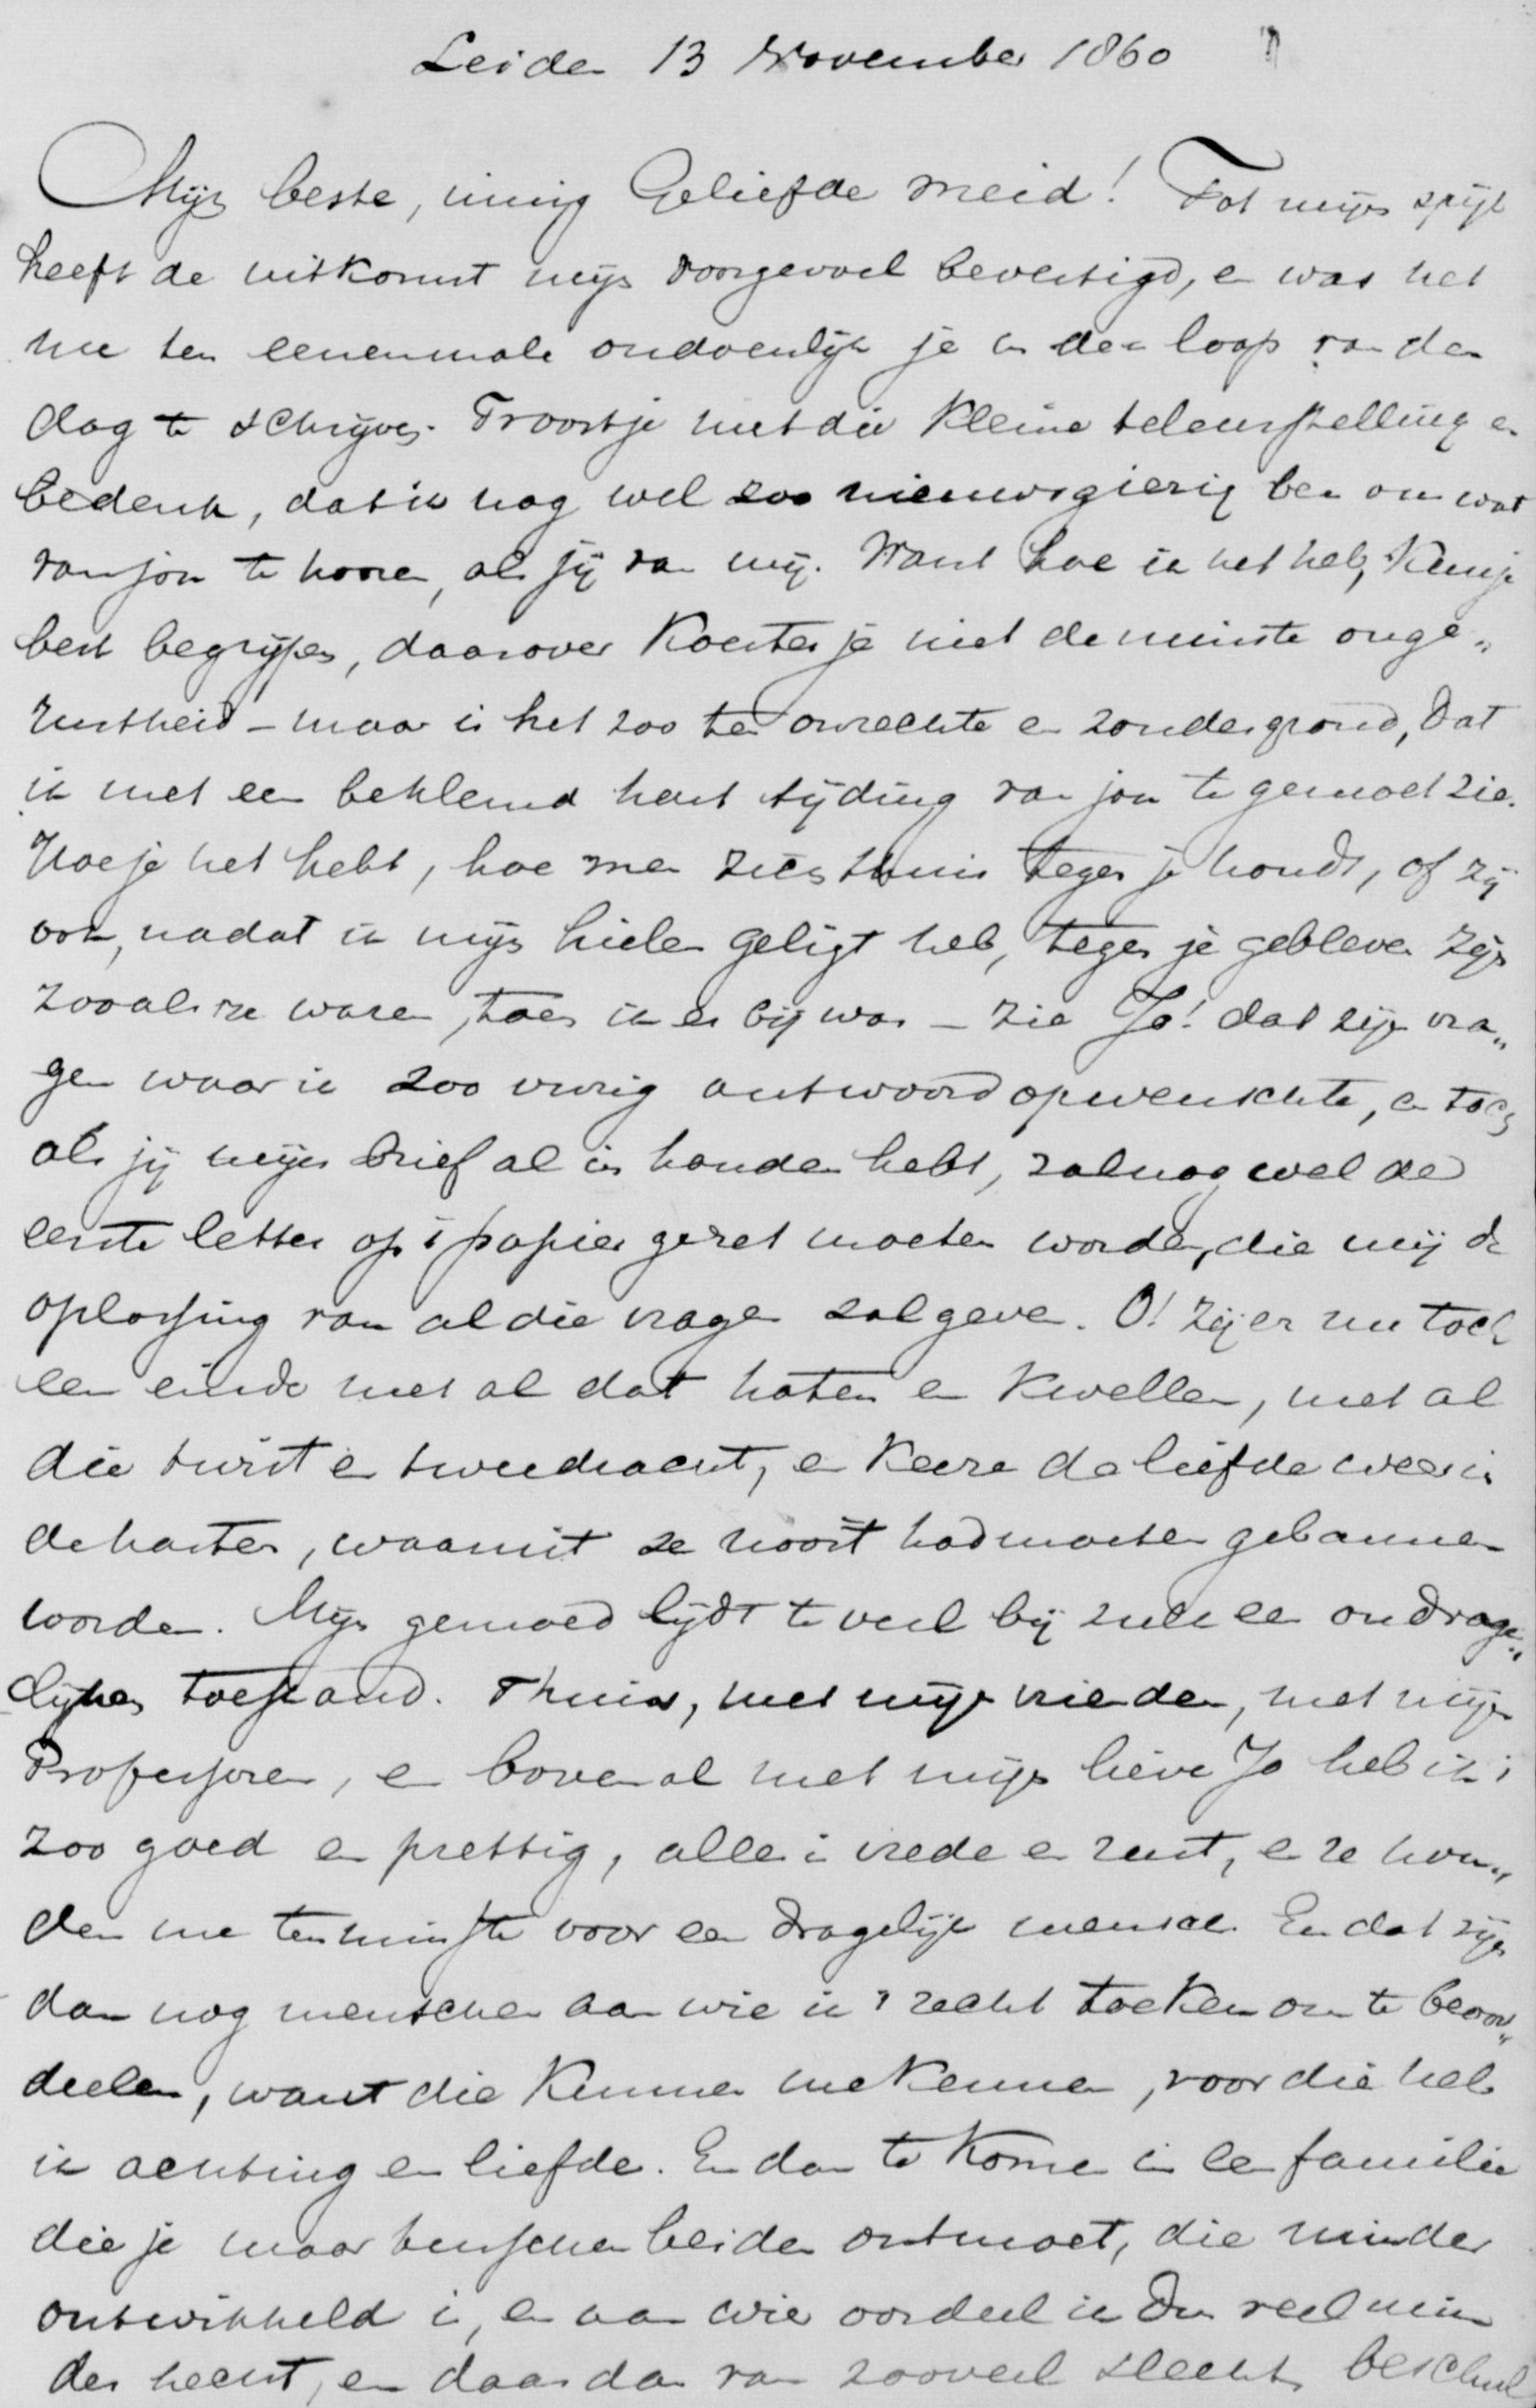 Leiden 13 November 1860
Mijn beste, innig Geliefde meid! Tot mijn spijt
heeft de uitkomst mijn voorgevoel bevestigd, en was het
me ten eenenmale ondoenlijk je in den loop van den
dag te schrijven. Troost je met die kleine teleurstelling en
bedenk, dat ik nog wel zoo nieuwsgierig ben om wat
van jou te hooren, als jij van mij. Want hoe ik het heb, kun je
best begrijpen, daarover koester je niet de minste onge„
rustheid – maar is het zoo ten onrechte en zonder grond, dat
ik met een beklemd hart tijding van jou te gemoet zie.
Hoe je het hebt, hoe men zich thuis tegen je houdt, of zij
ook, nadat ik mijn hielen geligt heb, tegen je gebleven zijn
zooals ze waren, toen ik er bij was – zie Jo! dat zijn vra„
gen waar ik zoo vurig antwoord op wenschte, en toch
als jij mijn brief al in handen hebt, zal nog wel de
eerste letter op 't papier gezet moeten worden, die mij de
oplossing van al die vragen zal geven. O! zij er nu toch
een einde met al dat haten en kwellen, met al
die twist en tweedracht, en keere de liefde weer in
de harten, waaruit ze nooit had moeten gebannen
worden. Mijn gemoed lijdt te veel bij zulk een ondrage„
lijken toestand. Thuis, met mijn vrienden, met mijn
Professoren, en bovenal met mijn lieve Jo heb ik 't
zoo goed en prettig, alles in vrede en rust, en ze hou„
den me ten minste voor een dragelijk mensch. En dat zijn
dan nog menschen aan wie ik 't recht toeken om te beoor„
deelen, want die kunnen me kennen, voor die heb
ik achting en liefde. En dan te komen in een familie
die je maar tusschenbeiden ontmoet, die minder
ontwikkeld is, en aan wie oordeel ik dus veel min
der hecht, en daar dan van zooveel slechts beschul